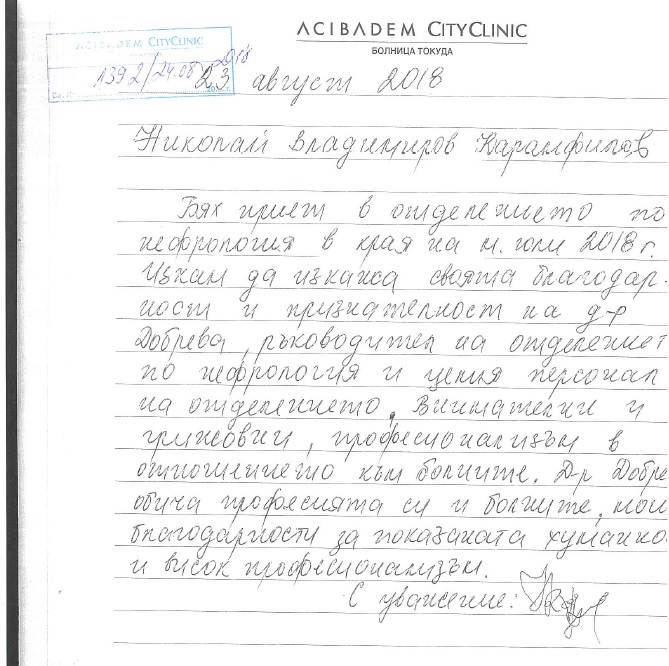 ACIBADEM CITYCLINIC
БОЛНИЦА ТОКУДА
ACIBADEM CITYCLINIC
1392/24.08 2018
23 август 2018
Николай Владимиров Карамфилов
Бях приет в отделението по
нефрология в края на м. юли 2018 г.
Искам да изкажа своята благодар-
ност и признателност на д-р
Добрева, ръководител на отделениет
по нефрология и целия персонал
на отделението. Внимателни и
грижовни, професионализъм в
отношението към болните. Д-р Добре
обича професията си и болните, мои
благодарности за показаната хуманно
и висок професионализъм.
С уважение: